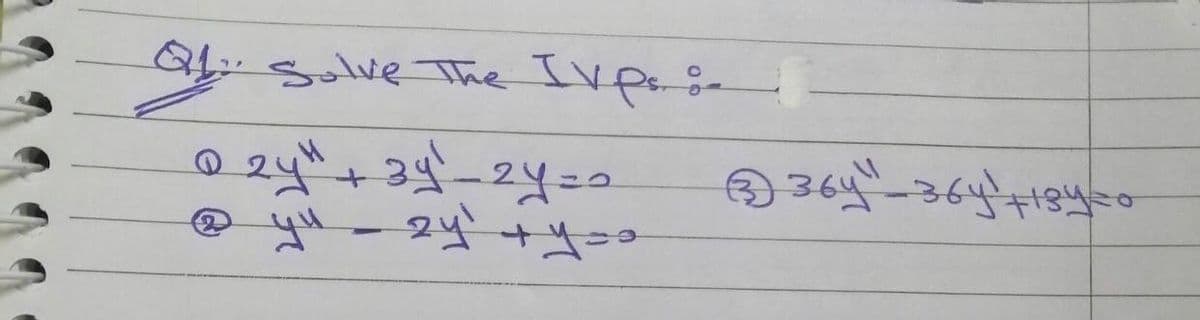 Q1:- Solve The IVPs. :-
① 2y" + 3y' - 2y = 0
② y" - 2y' + y = 0
③ 36y" - 36y' + 13y = 0